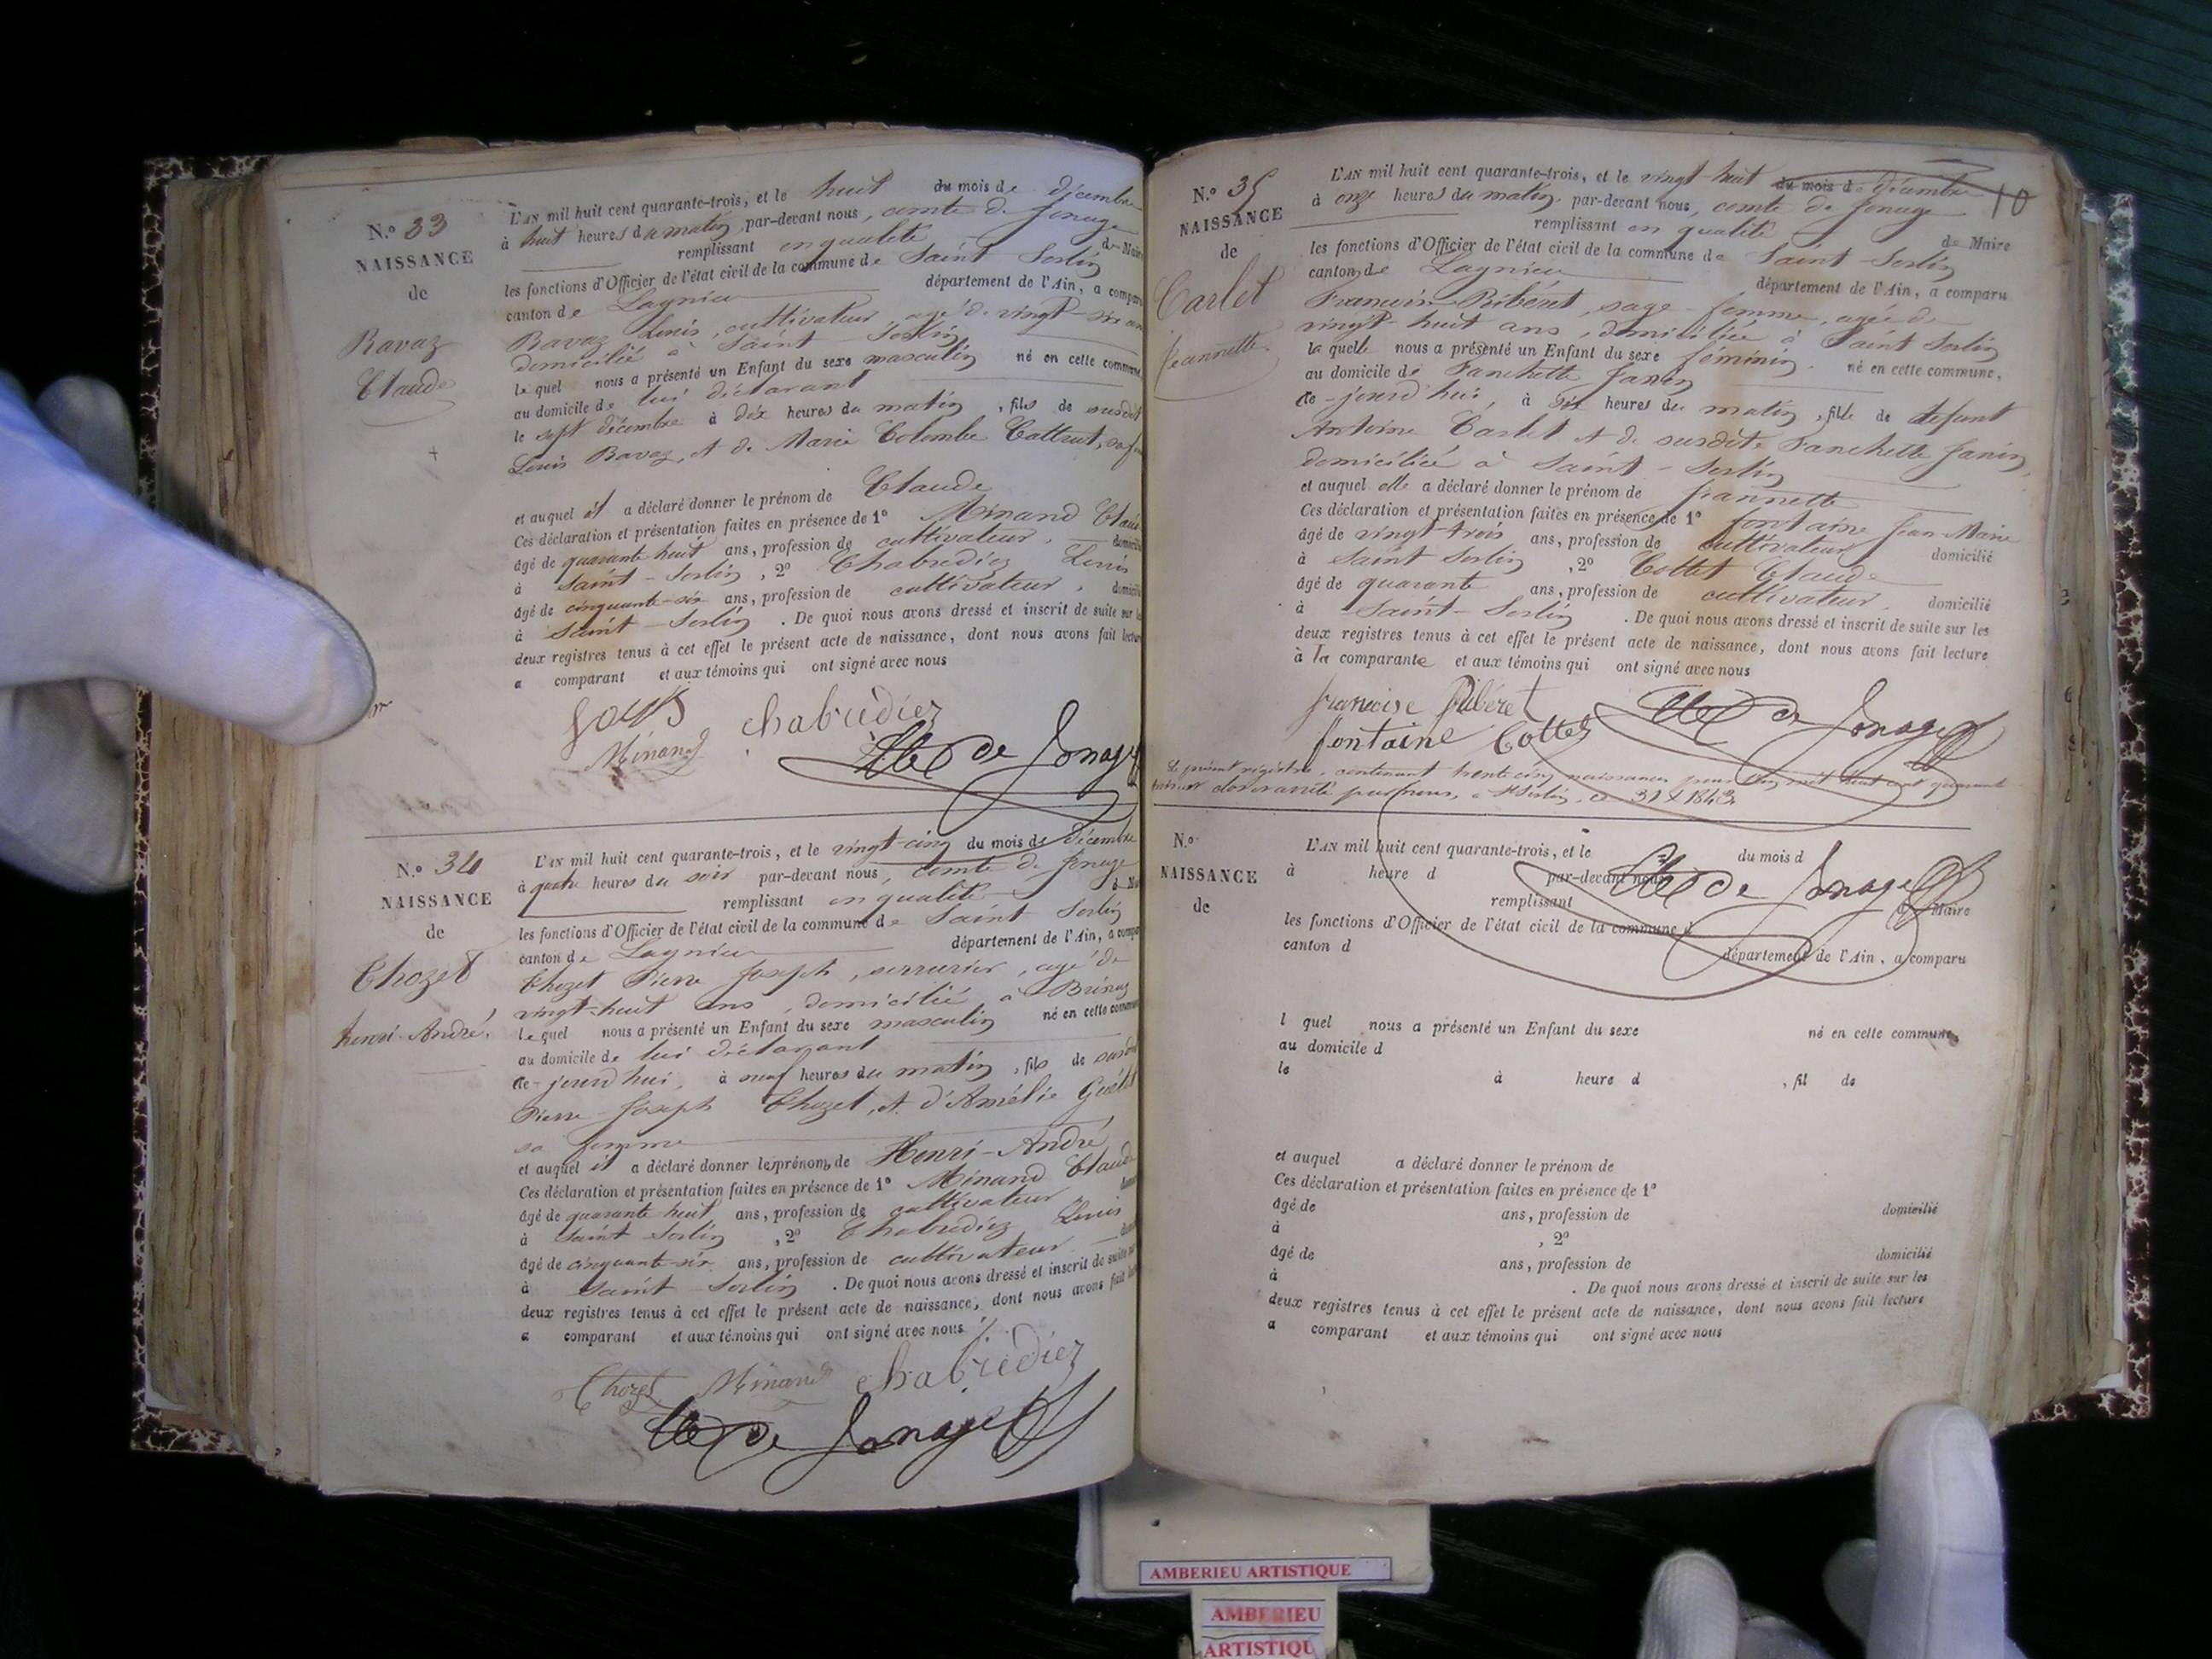 N.o 33
NAISSANCE
de
Ravaz
Claude
L'AN mil huit cent quarante-trois, et le huit du mois de décembre
à huit heures du matin, par-devant nous, comte de Jonage
remplissant en qualité de Maire
les fonctions d'Officier de l'état civil de la commune de Saint Sorlin
canton de Lagnieu département de l'Ain, a comparu
Ravaz Louis, cultivateur, agé de vingt-six ans
domicilié à Saint-Sorlin
le quel nous a présenté un Enfant du sexe masculin né en cette commune,
au domicile de lui déclarant
le sept décembre à dix heures du matin, fils de susdit
Louis Ravaz, et de Marie Colombe
et auquel il a déclaré donner le prénom de Claude
Ces déclaration et présentation faites en présence de 1o Minand Claude
âgé de quarante-huit ans, profession de cultivateur, domicilié
à Saint-Sorlin, 2o Chabrediez Louis
âgé de cinquante-six ans, profession de cultivateur, domicilié
à Saint-Sorlin. De quoi nous avons dressé et inscrit de suite sur les
deux registres tenus à cet effet le présent acte de naissance, dont nous avons fait lecture
a comparant et aux témoins qui ont signé avec nous
chabrediez
Minand
de Jonage
N.o 34
NAISSANCE
de
Chozet
henri-André.
L'AN mil huit cent quarante-trois, et le vingt-cinq du mois de décembre
à quatre heures du soir par-devant nous, comte de Jonage
remplissant en qualité
les fonctions d'Officier de l'état civil de la commune de Saint Sorlin
canton de Lagnieu département de l'Ain, a comparu
Chozet Pierre Joseph, serrurier, agé de
vingt-huit ans, domicilié à
le quel nous a présenté un Enfant du sexe masculin né en cette commune
au domicile de lui déclarant
ce-jourd'hui, à neuf heures du matin, fils de susdit
Pierre-Joseph Chozet, et d'Amélie
sa femme
et auquel il a déclaré donner les prénoms de Henri-André
Ces déclaration et présentation faites en présence de 1o Minand Claude
âgé de quarante huit ans, profession de cultivateur
à Saint-Sorlin, 2o Chabrediez Louis
âgé de cinquante-six ans, profession de cultivateur
à Saint-Sorlin. De quoi nous avons dressé et inscrit de suite sur
deux registres tenus à cet effet le présent acte de naissance, dont nous avons fait
a comparant et aux témoins qui ont signé avec nous
Chozet Minand chabrediez
de Jonage
10
N.o 35
NAISSANCE
de
Carlet
Jeannette
L'AN mil huit cent quarante-trois, et le vingt huit du mois de décembre
à onze heures du matin, par-devant nous, comte de Jonage
remplissant en qualité de Maire
les fonctions d'Officier de l'état civil de la commune de Saint-Sorlin
canton de Lagnieu département de l'Ain, a comparu
Françoise Ribéret, sage-femme, agée de
vingt-huit ans, domiciliée à Saint Sorlin
la quelle nous a présenté un Enfant du sexe féminin. né en cette commune,
au domicile de Fanchette Janin
ce-jourd'hui, à six heures du matin, fille de défunt
Antoine Carlet et de susdite Fanchette Janin,
domiciliée à Saint-Sorlin
et auquel elle a déclaré donner le prénom de Jeannette
Ces déclaration et présentation faites en présence de 1o fontaine Jean Marie
âgé de vingt-trois ans, profession de cultivateur domicilié
à Saint Sorlin, 2o Cottet Claude
âgé de quarante ans, profession de cultivateur. domicilié
à Saint-Sorlin. De quoi nous avons dressé et inscrit de suite sur les
deux registres tenus à cet effet le présent acte de naissance, dont nous avons fait lecture
à la comparante et aux témoins qui ont signé avec nous
françoise Ribéret
fontaine Cottet
de Jonage
Le présent régistre, contenant trente cinq naissances pour mil huit cent quarante
trois clos et arrêté par nous, à St Sorlin, ce 31 1843
de Jonage
N.o
NAISSANCE
de
L'AN mil huit cent quarante-trois, et le du mois d
à heure d par-devant nous
remplissant d Maire
les fonctions d'Officier de l'état civil de la commune d
canton d département de l'Ain, a comparu
l quel nous a présenté un Enfant du sexe né en cette commune,
au domicile d
le à heure d , fil de
et auquel a déclaré donner le prénom de
Ces déclaration et présentation faites en présence de 1o
âgé de ans, profession de domicilié
à , 2o
âgé de ans, profession de domicilié
à . De quoi nous avons dressé et inscrit de suite sur les
deux registres tenus à cet effet le présent acte de naissance, dont nous avons fait lecture
a comparant et aux témoins qui ont signé avec nous
AMBERIEU ARTISTIQUE
AMBERIEU
ARTISTIQU